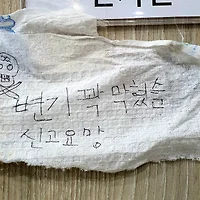 변기 꽉 막혔슴
신고요망